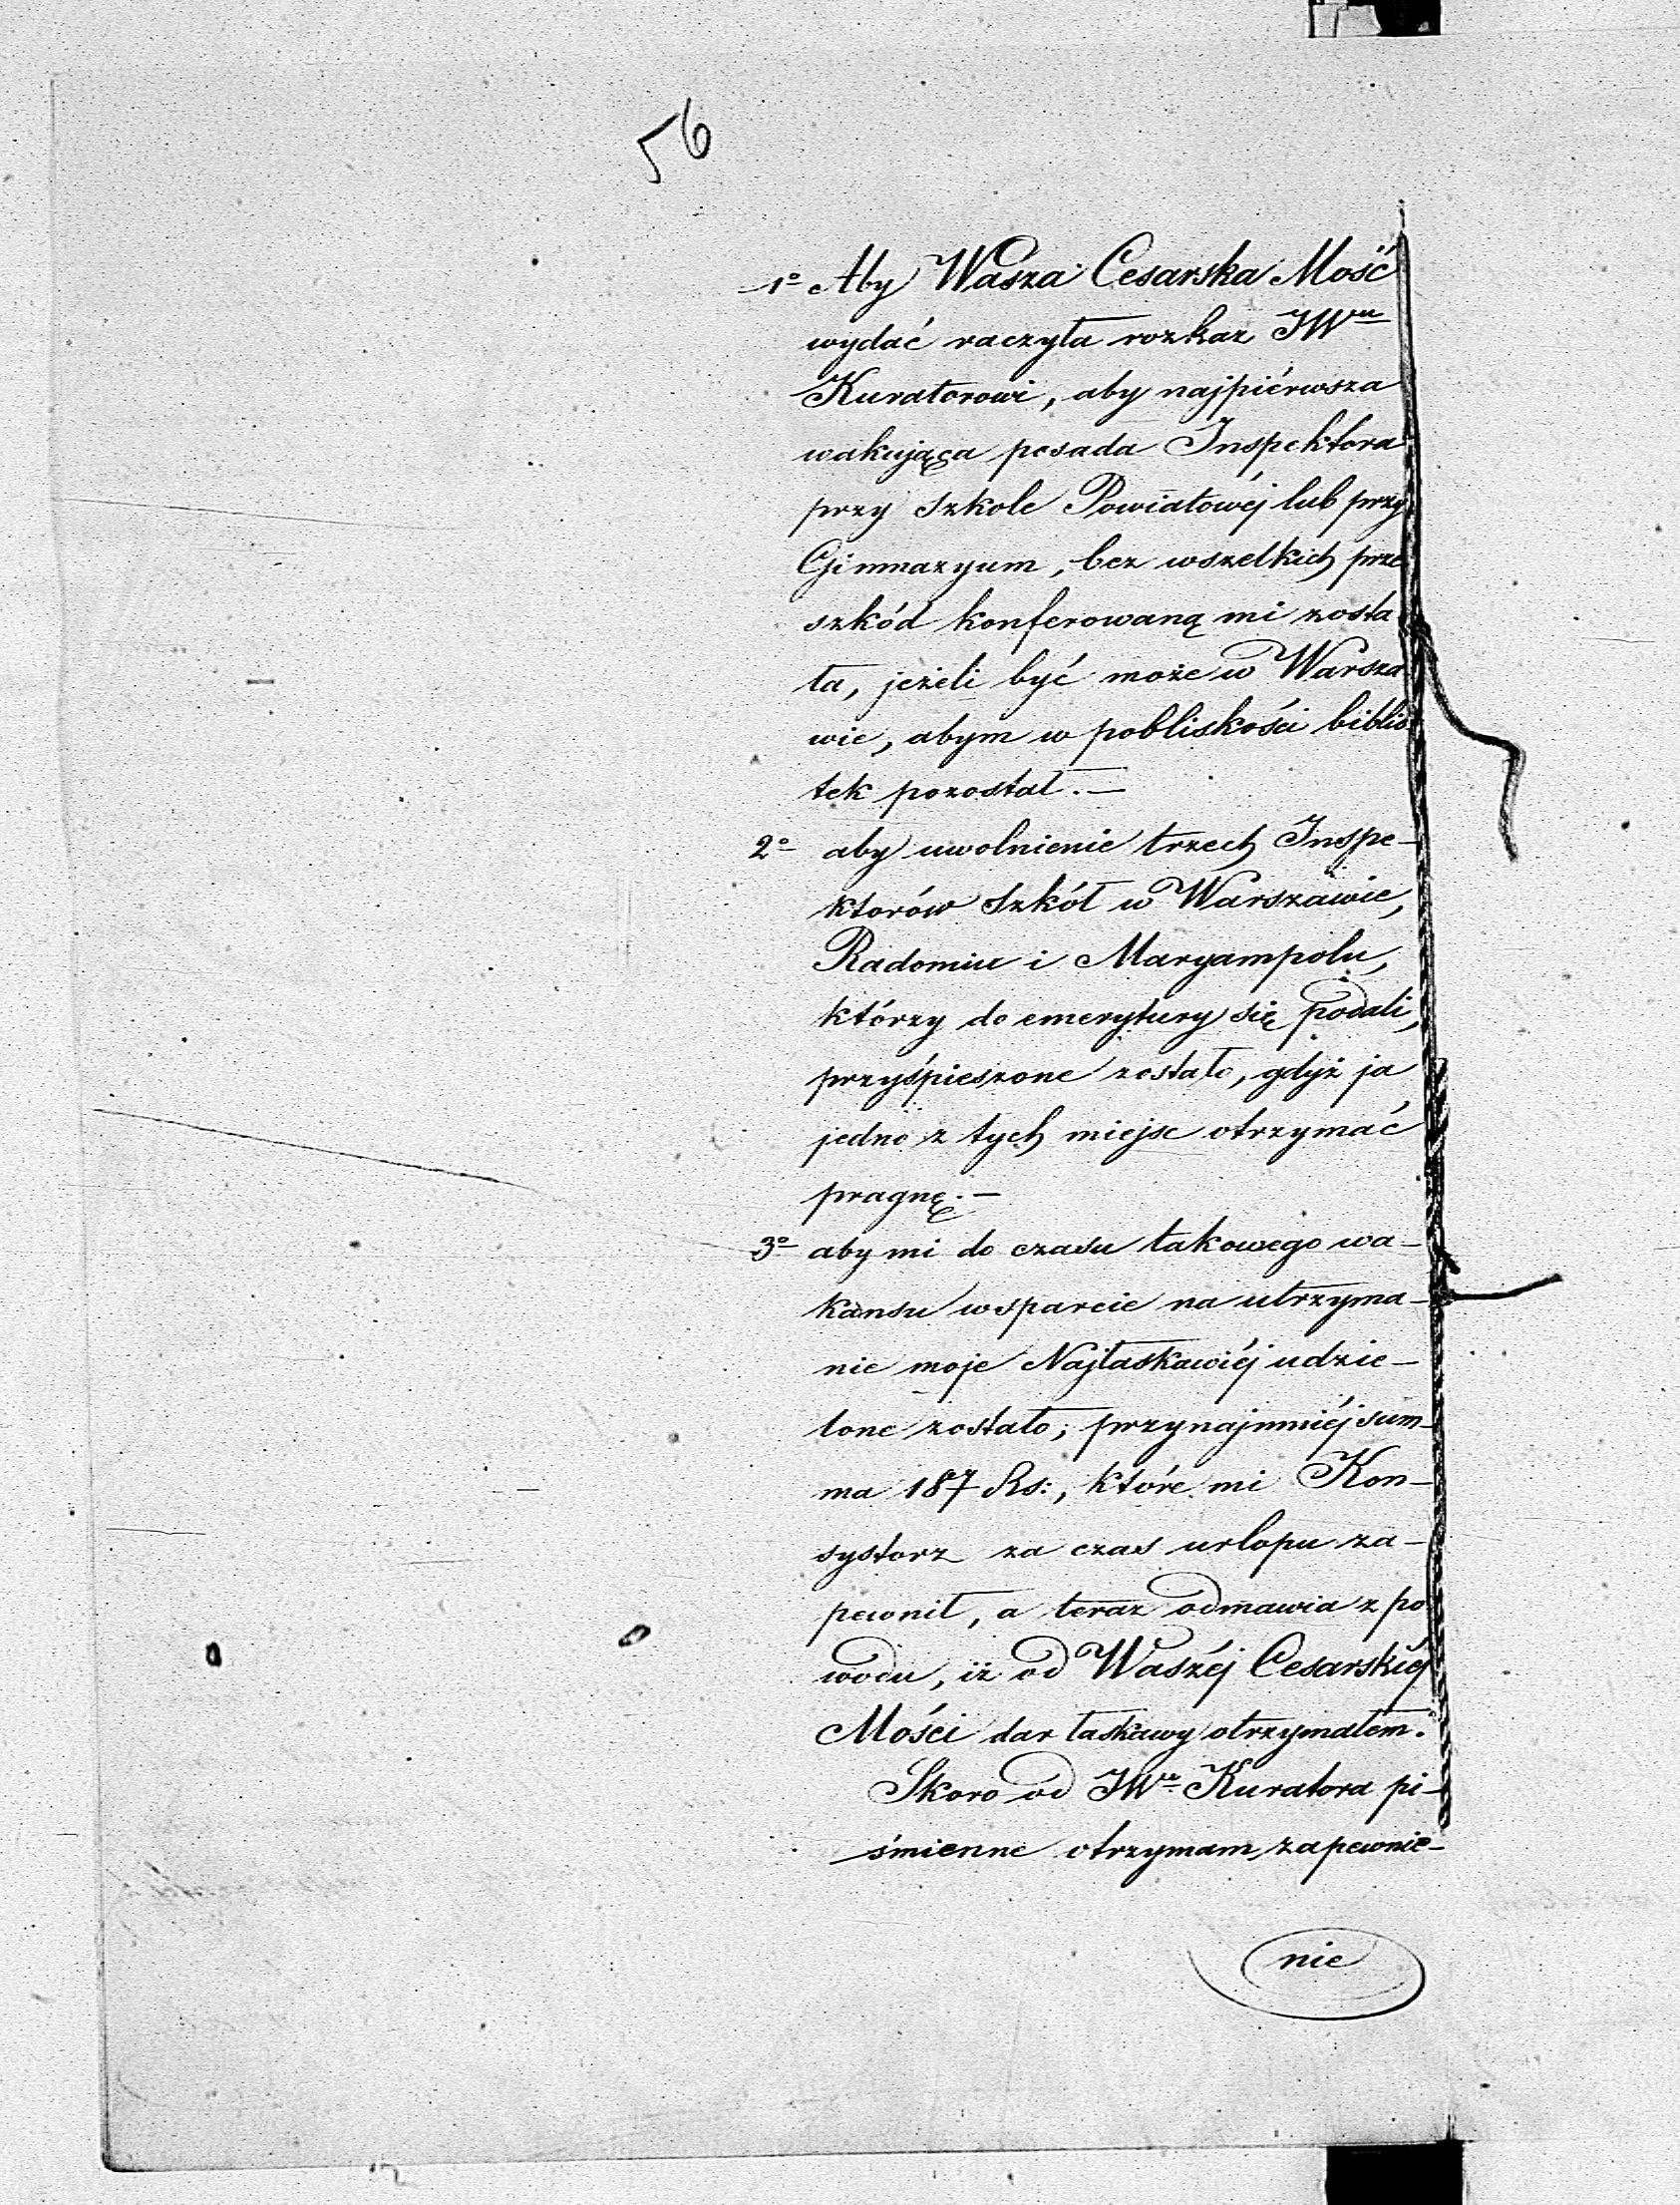 56
1º Aby Wasza Cesarska Mość
wydać raczyła rozkaz JWu
Kuratorowi, aby najpiérwsza
wakująca posada Inspektora
przy Szkole Powiatowéj lub przy
Gimnazyum, bez wszelkich prze
szkód konferowaną mi zosta
ła, jeżeli być może w Warsza
wie, abym w pobliskości biblio
tek pozostał.—
2º aby uwolnienie trzech Inspe-
ktorów Szkół w Warszawie,
Radomiu i Maryampolu,
którzy do emerytury się podali,
przyśpieszone zostało, gdyż ja
jedno z tych miejsc otrzymać
pragnę.—
3º aby mi do czasu takowego wa-
kansu wsparcie na utrzyma-
nie moje Najłaskawiéj udzie-
lone zostało; przynajmniéj sum-
ma 187 Rs:, które mi Kon-
systorz za czas urlopu za-
pewnił, a teraz odmawia z po
wodu, iż od Waszéj Cesarskiéj
Mości dar łaskawy otrzymałem.
Skoro od JWo Kuratora pi-
śmienne otrzymam zapewnie-
nie